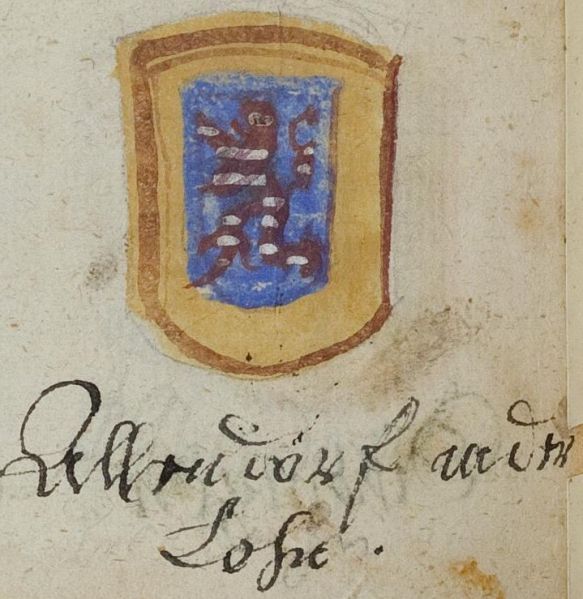 Allendorf ander
Lohe.